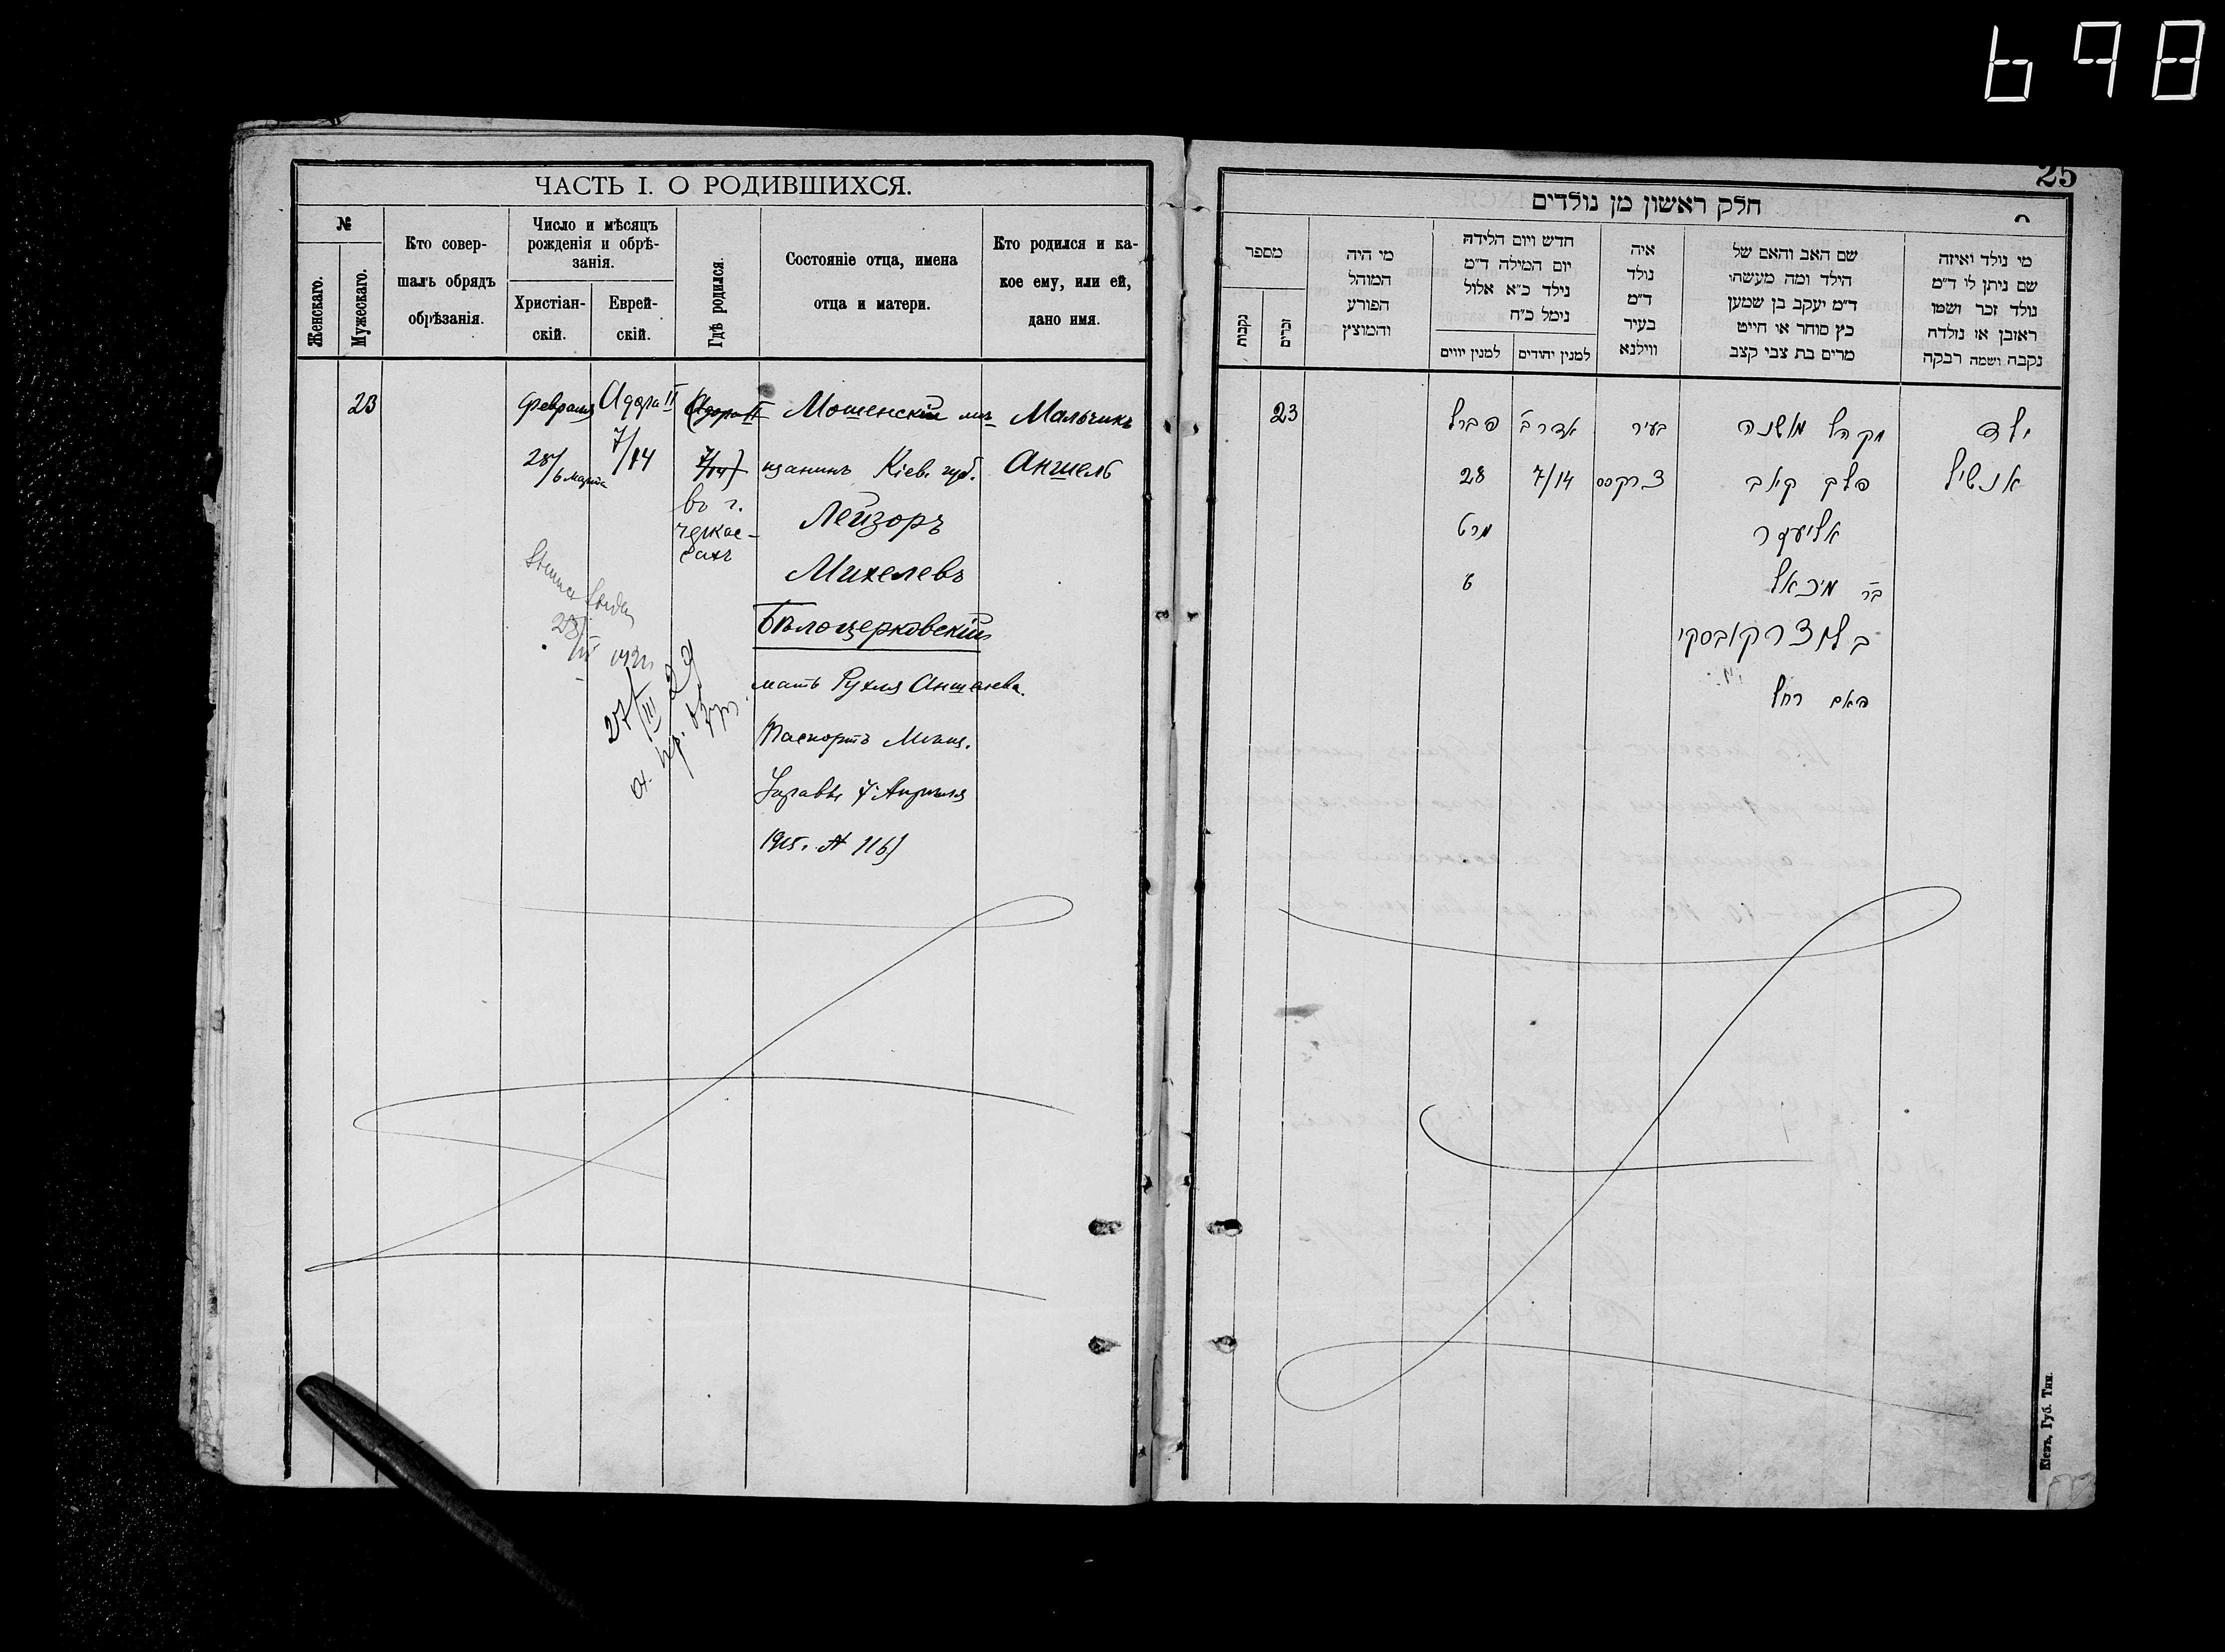 698
ЧАСТЬ I. О РОДИВШИХСЯ.
№
Женскаго.
Мужескаго.
Кто совер-
шалъ обрядъ
обрѣзанія.
Число и мѣсяцъ
рожденія и обрѣ-
занія.
Христіан-
скій.
Еврей-
скій.
Гдѣ родился.
Состояніе отца, имена
отца и матери.
Кто родился и ка-
кое ему, или ей,
дано имя.
23
Февраля
28/6 марта
Адора II
7/14
(Адора II
7/14)
въ г.
Черкас-
сахъ
Мошенскій мѣ-
щанинъ Кіев. губ.
Лейзоръ
Михелевъ
Бѣлоцерковскій
мать Рухля Аншелева.
(Паспортъ Мѣщ.
Управы 7 Апрѣля
1915. № 116)
Мальчикъ
Аншель
28/III
27/III 29
25
חלק ראשון מן נולדים
מספר
נקבות
זכרים
מי היה
המוהל
הפורע
והמוצץ
חדש ויום הלידה
יום המילה ד״מ
נילד כ״א אלול
נימל כ״ח
למנין יווים
למנין יהודים
איה
נולד
ד״מ
בעיר
ווילנא
שם האב והאם של
הילד ומה מעשהו
ד״מ יעקב בן שמען
כץ סוחר או חייט
מרים בת צבי קצב
מי נולד ואיזה
שם ניתן לו ד״מ
נולד זכר ושמו
ראובן או נולדה
נקבה ושמה רבקה
23
פברל
28
מרט
6
אדר ב׳
7/14
בעיר
צרקסס
מקהל מושנה
פלך קאב
אליעזר
בר מיכאל
בלצרקובסקי
האם רחל
ילד
אנשיל
Кіевъ, Губ. Тип.